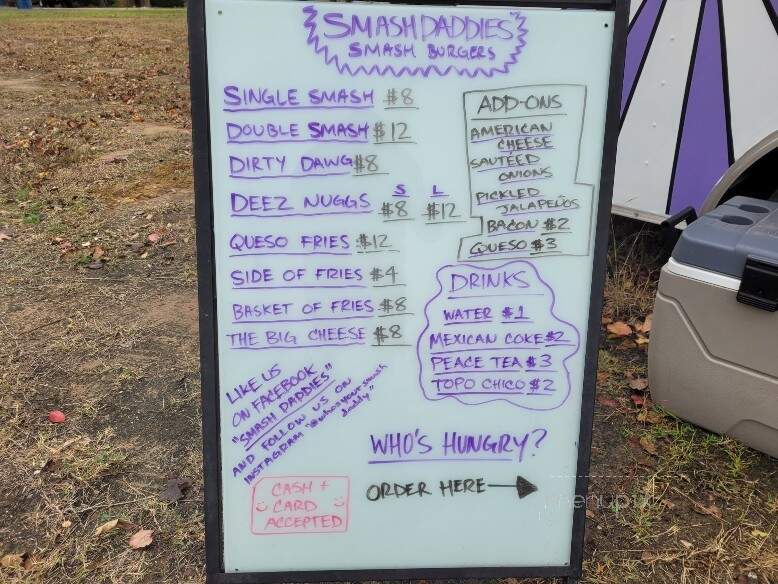 SMASHDADDIES
SMASH BURGERS
SINGLE SMASH $8
DOUBLE SMASH $12
DIRTY DAWG $8
S L
DEEZ NUGGS $8 $12
QUESO FRIES $12
SIDE OF FRIES $4
BASKET OF FRIES $8
THE BIG CHEESE $8
ADD-ONS
AMERICAN
CHEESE
SAUTÉED
ONIONS
PICKLED
JALAPEÑOS
BACON $2
QUESO $3
DRINKS
WATER $1
MEXICAN COKE $2
PEACE TEA $3
TOPO CHICO $2
LIKE US
ON FACEBOOK
"SMASH DADDIES"
AND FOLLOW US ON
INSTAGRAM "@whosyoursmash
daddy"
WHO'S HUNGRY?
ORDER HERE
CASH +
CARD
ACCEPTED
menupix